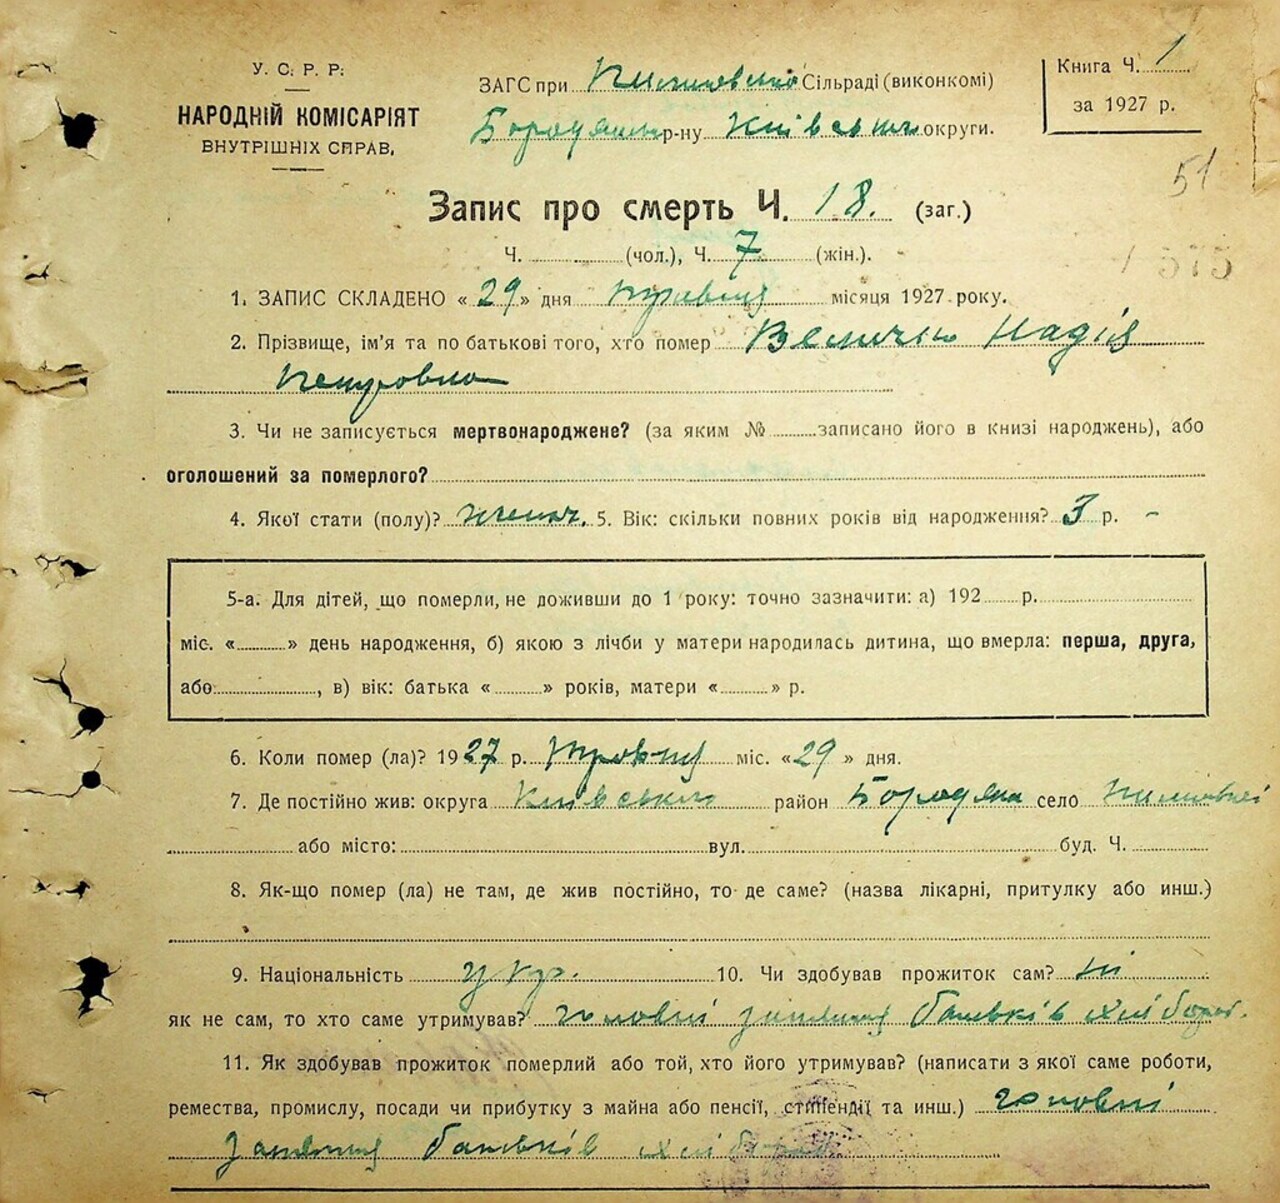 У. С. Р. Р.
НАРОДНІЙ КОМІСАРІЯТ
ВНУТРІШНІХ СПРАВ.
ЗАГС при Сільраді (виконкомі)
р-ну Київськ округи.
Книга Ч. 1
за 1927 р.
51
Запис про смерть Ч. 18. (заг.)
Ч. (чол.), Ч. 7 (жін.).
1. ЗАПИС СКЛАДЕНО « 29 » дня травня місяця 1927 року.
2. Прізвище, ім'я та по батькові того, хто помер Величко Надія
Петровна
3. Чи не записується мертвонароджене? (за яким № записано його в книзі народжень), або
оголошений за померлого?
4. Якої стати (полу)? женоч. 5. Вік: скільки повних років від народження? 3 р. -
5-а. Для дітей, що померли, не доживши до 1 року: точно зазначити: а) 192 р.
міс. « » день народження, б) якою з лічби у матери народилась дитина, що вмерла: перша, друга,
або , в) вік: батька « » років, матери « » р.
6. Коли помер (ла)? 1927 р. травня міс. «29» дня.
7. Де постійно жив: округа Київського район Бородянка село
або місто: вул. буд. Ч.
8. Як-що помер (ла) не там, де жив постійно, то де саме? (назва лікарні, притулку або инш.)
9. Національність укр. 10. Чи здобував прожиток сам? ні
як не сам, то хто саме утримував? головні заняття батьків хлібороб.
11. Як здобував прожиток померлий або той, хто його утримував? (написати з якої саме роботи,
ремества, промислу, посади чи прибутку з майна або пенсії, стипендії та инш.) головні
заняття батьків хлібороб